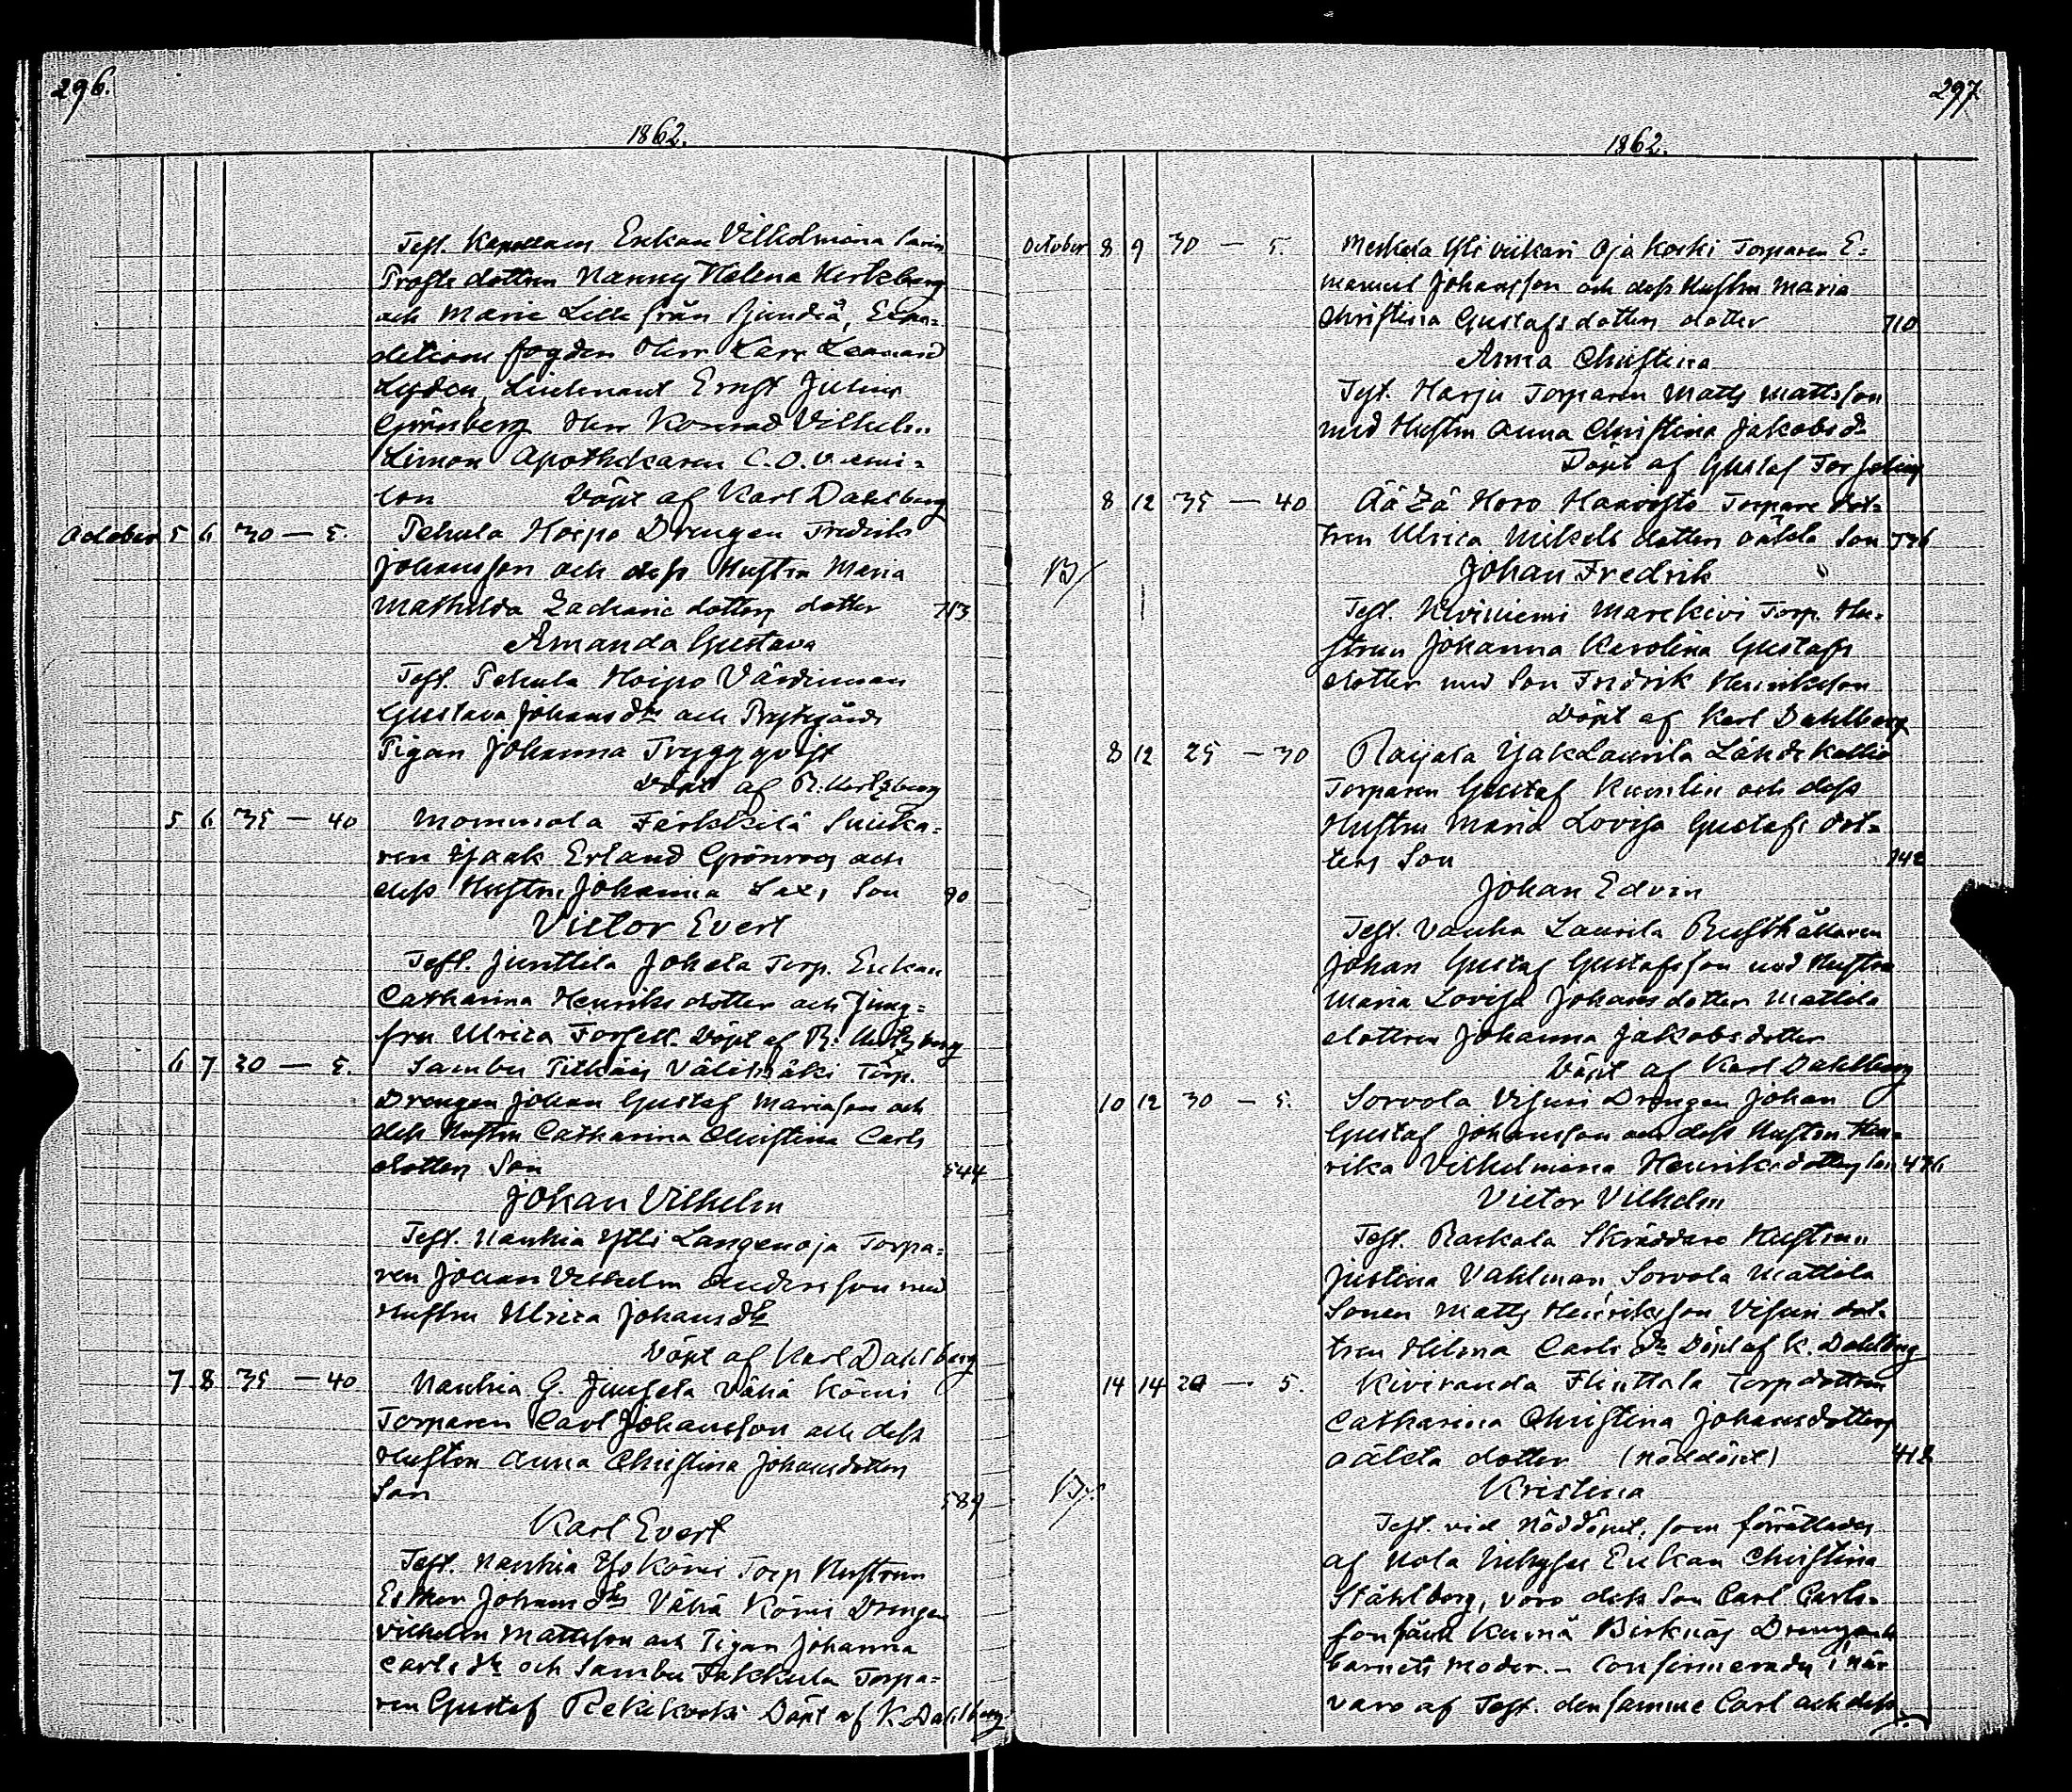 296.
1862.
Test. Enkan Vilhelmina
Prosts dottren Nanny Helena Hertzberg
och Marie Lille från
fogden Herr Karr Leonard
Lieutenant Ernst Julius
Grönberg Herr Konrad Vilhelm
Limon Apothekaren C. O.
Döpt af Karl Dahlberg
October 5 6 30 — 5. Pehula Hoipo Drengen Fredrik
Johansson och dess Hustru Maria
Mathilda Zacharie dotters dotter 713
Amanda Gustava
Test. Pehula Hoipo Värdinnan
Gustava Johansdr och
Pigan Johanna Tryggqvist
Döpt af R. Hertzberg
5 6 35 — 40 Mommola Färkkilä
Isaak Erland Grönroos och
dess Hustru Johanna Sax, Son 90
Victor Evert
Test. Junttila Johela Torp. Enkan
Catharina Henriks dotter och Jung=
fru Ulrica Forsell. Döpt af R. Hertzberg
6 7 30 — 5. Sambu Pitkäis Välimäki Torp.
Drengen Johan Gustaf Mariason och
dess Hustru Catharina Christina Carls
dotters Son 544
Johan Vilhelm
Test. Nanhia Ylli Langenoja Torpa=
ren Johan Vilhelm Andersson med
Hustru Ulrica Johansdr
Döpt af Karl Dahlberg
7 8 35 — 40 Nanhia G. Junsela Vähä Kömi
Torparen Carl Johansson och dess
Hustru Anna Christina Johansdotters
Son 589
Karl Evert
Test. Nanhia Iso Kömi Torp Hustrun
Esther Johansdr Vähä Kömi Drengen
Vilhelm Mattsson och Pigan Johanna
Carlsdr och Sambu Takkula Torpa=
ren Gustaf Rekikoski Döpt af K. Dahlberg
297
1862.
October 8 9 30 — 5. Meskala Yli viikari Oja koski Torparen E=
manuel Johansson och dess Hustru Maria
Christina Gustafs dotters dotter 710
Anna Christina
Test. Harju Torparen Matts Mattsson
med Hustru Anna Christina Jakobsdr
Döpt af Gustaf
8 12 35 — 40 Horo Haavisto Torpare dot=
tren Ulrica Mikels dotters oäkta Son 526
B/ Johan Fredrik
Test. Kiviniemi Marekivi Torp. Hu=
strun Johanna Karolina Gustafs
dotter med Son Fredrik Henriksson
Döpt af Karl Dahlberg
8 12 25 — 30 Raijala Laurila Lähdekallio
Torparen Gustaf Kumlin och dess
Hustru Maria Lovisa Gustafs dot=
ters Son 142
Johan Edvin
Test. Vanha Laurila Rusthållaren
Johan Gustaf Gustafsson med Hustru
Maria Lovisa Johansdotter Mattila
dottren Johanna Jakobsdotter
Döpt af Karl Dahlberg
10 12 30 — 5. Sorvola Visuri Drengen Johan
Gustaf Johansson och dess Hustru Hen=
rika Vilhelmina Henriksdotters Son 476
Victor Vilhelm
Test. Raskala Skräddare Hustrun
Justina Vahlman, Sorvola Mattila
Sonen Matts Henriksson Visuri dot=
tren Hilma Carlsdr Döpt af K. Dahlberg
14 14 20 — 5. Kiviranda Flinttala Torpdottren
Catharina Christina Johansdotters
oäkta dotter (nöddöpt) 412
B/. Kristina
Test. vid Nöddöpet, som förrättades
af Nola Enkan Christina
Ståhlberg, voro dess Son Carl Carls=
son från Kumä Björknäs Dreng och
barnets moder. – Confirmerades i när
varo af Test. densamme Carl och dess